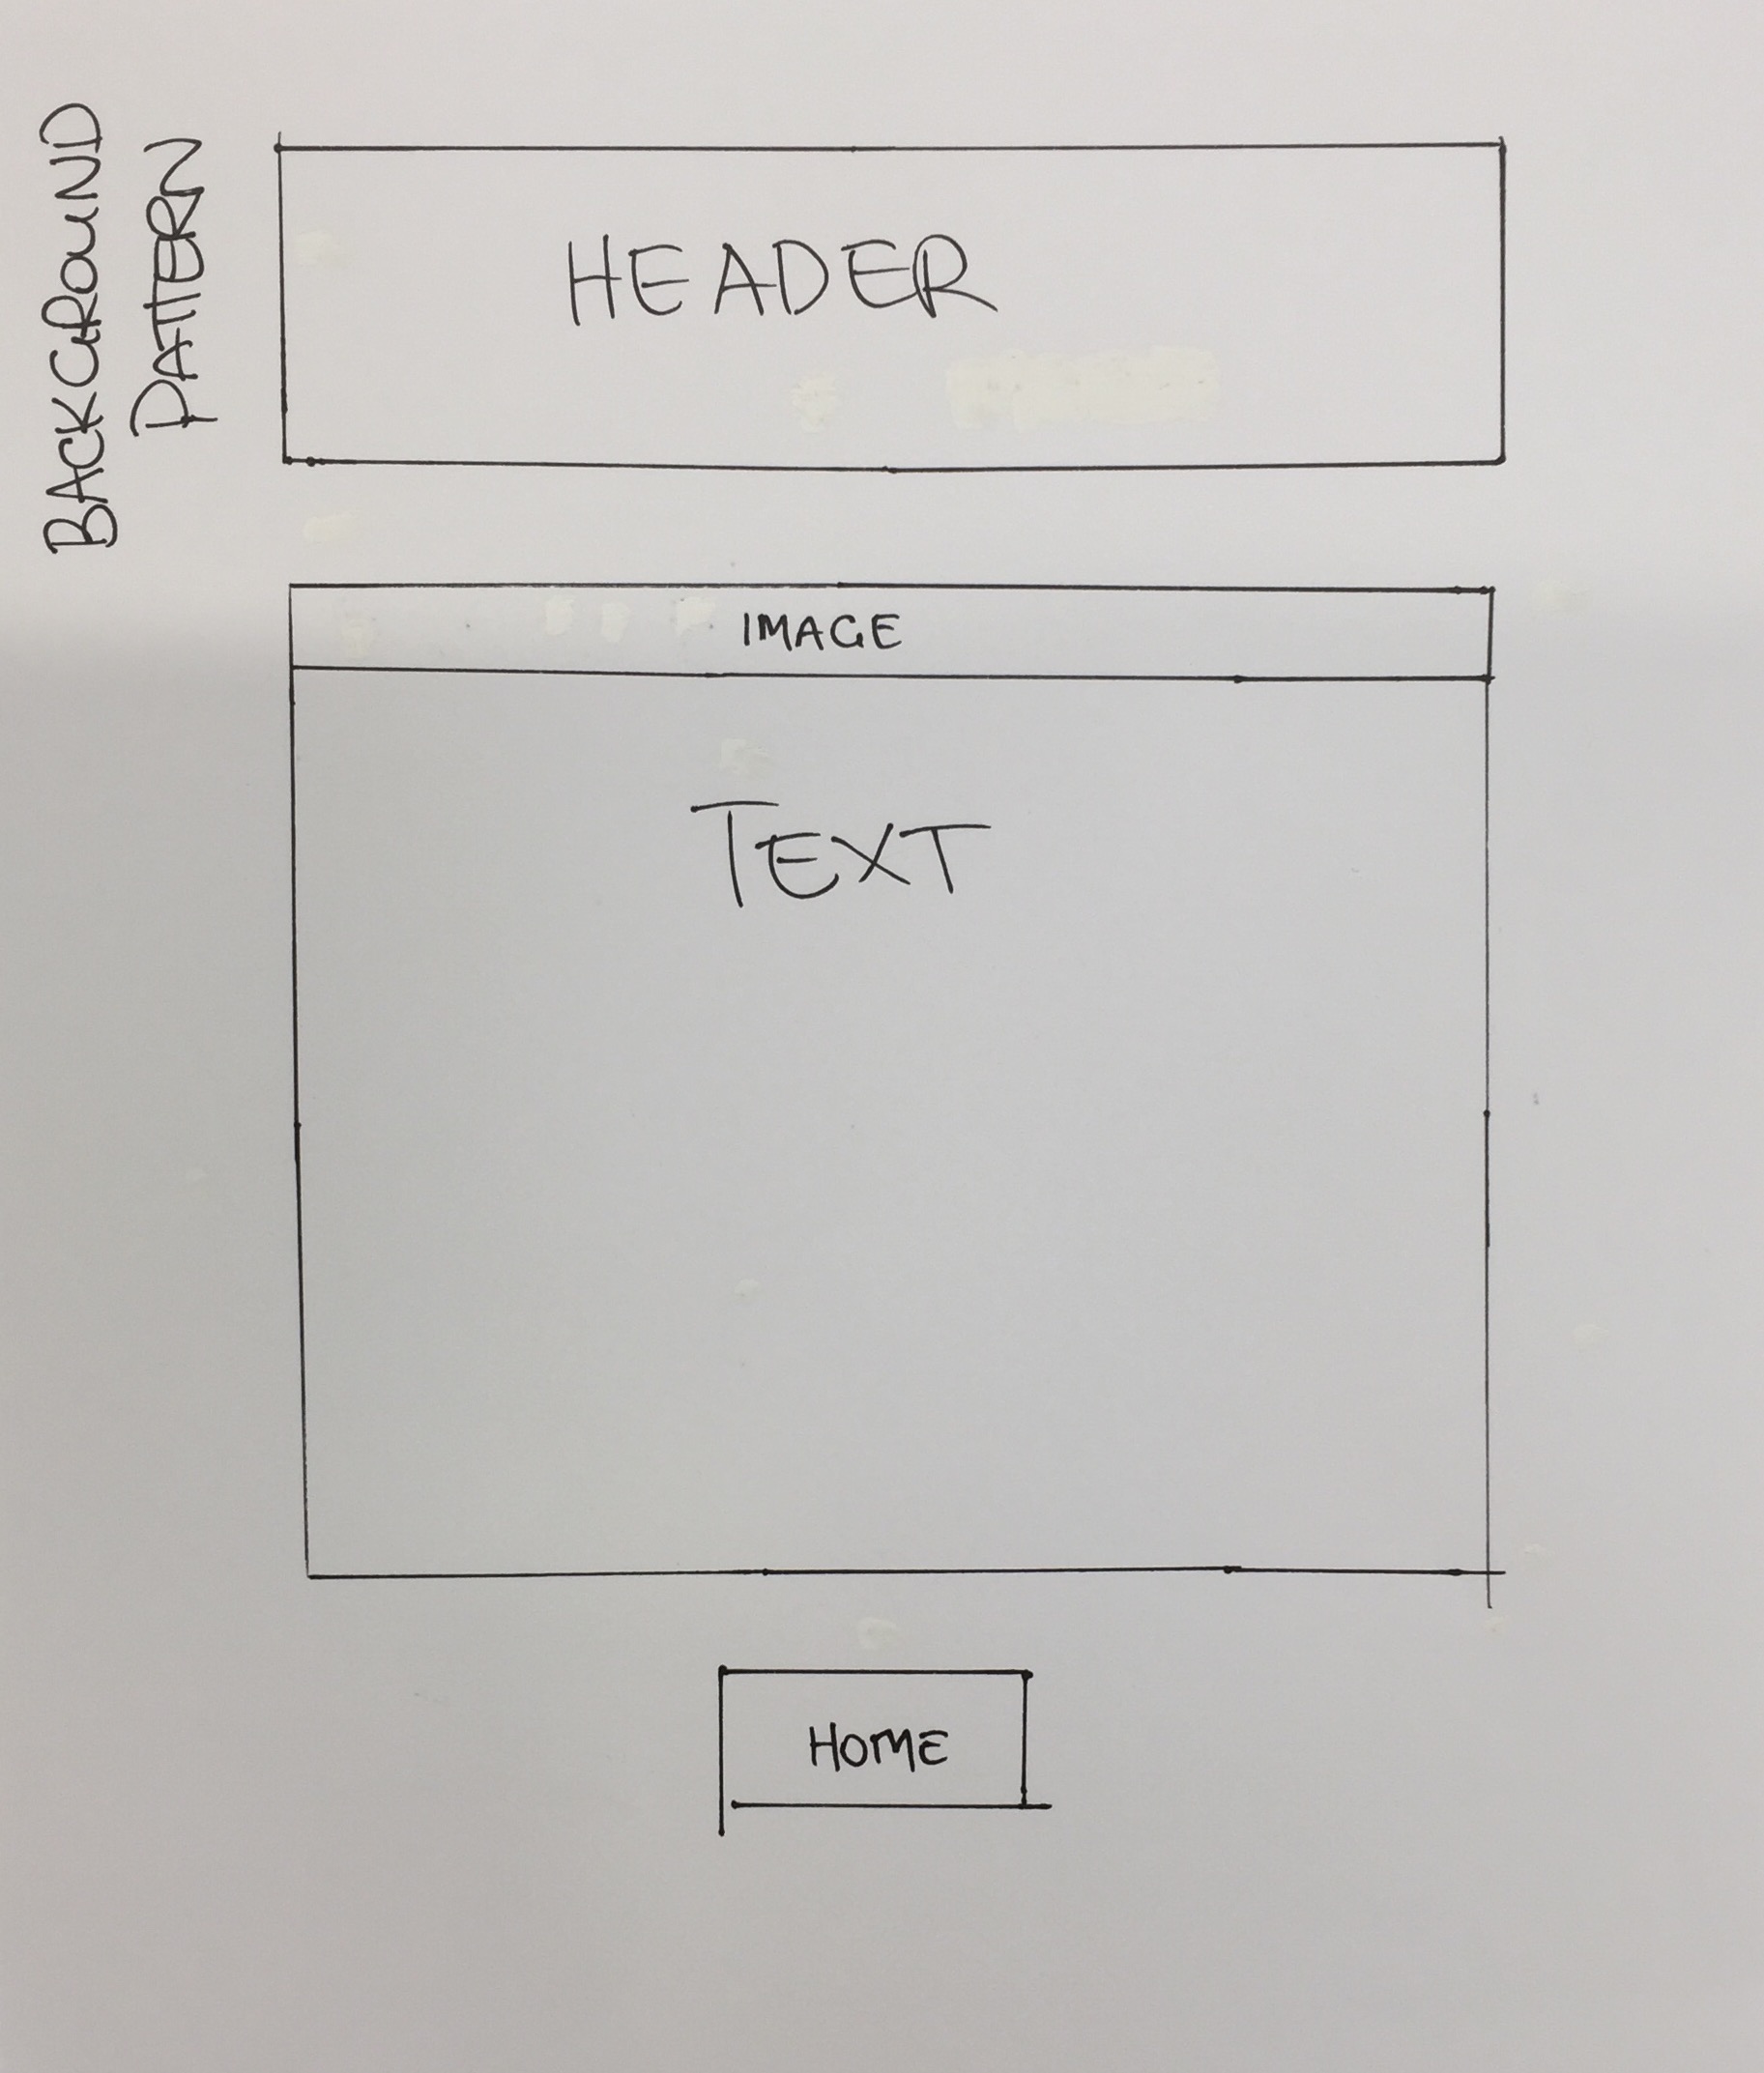 BACKGROUND
PATTERN
HEADER
IMAGE
TEXT
HOME